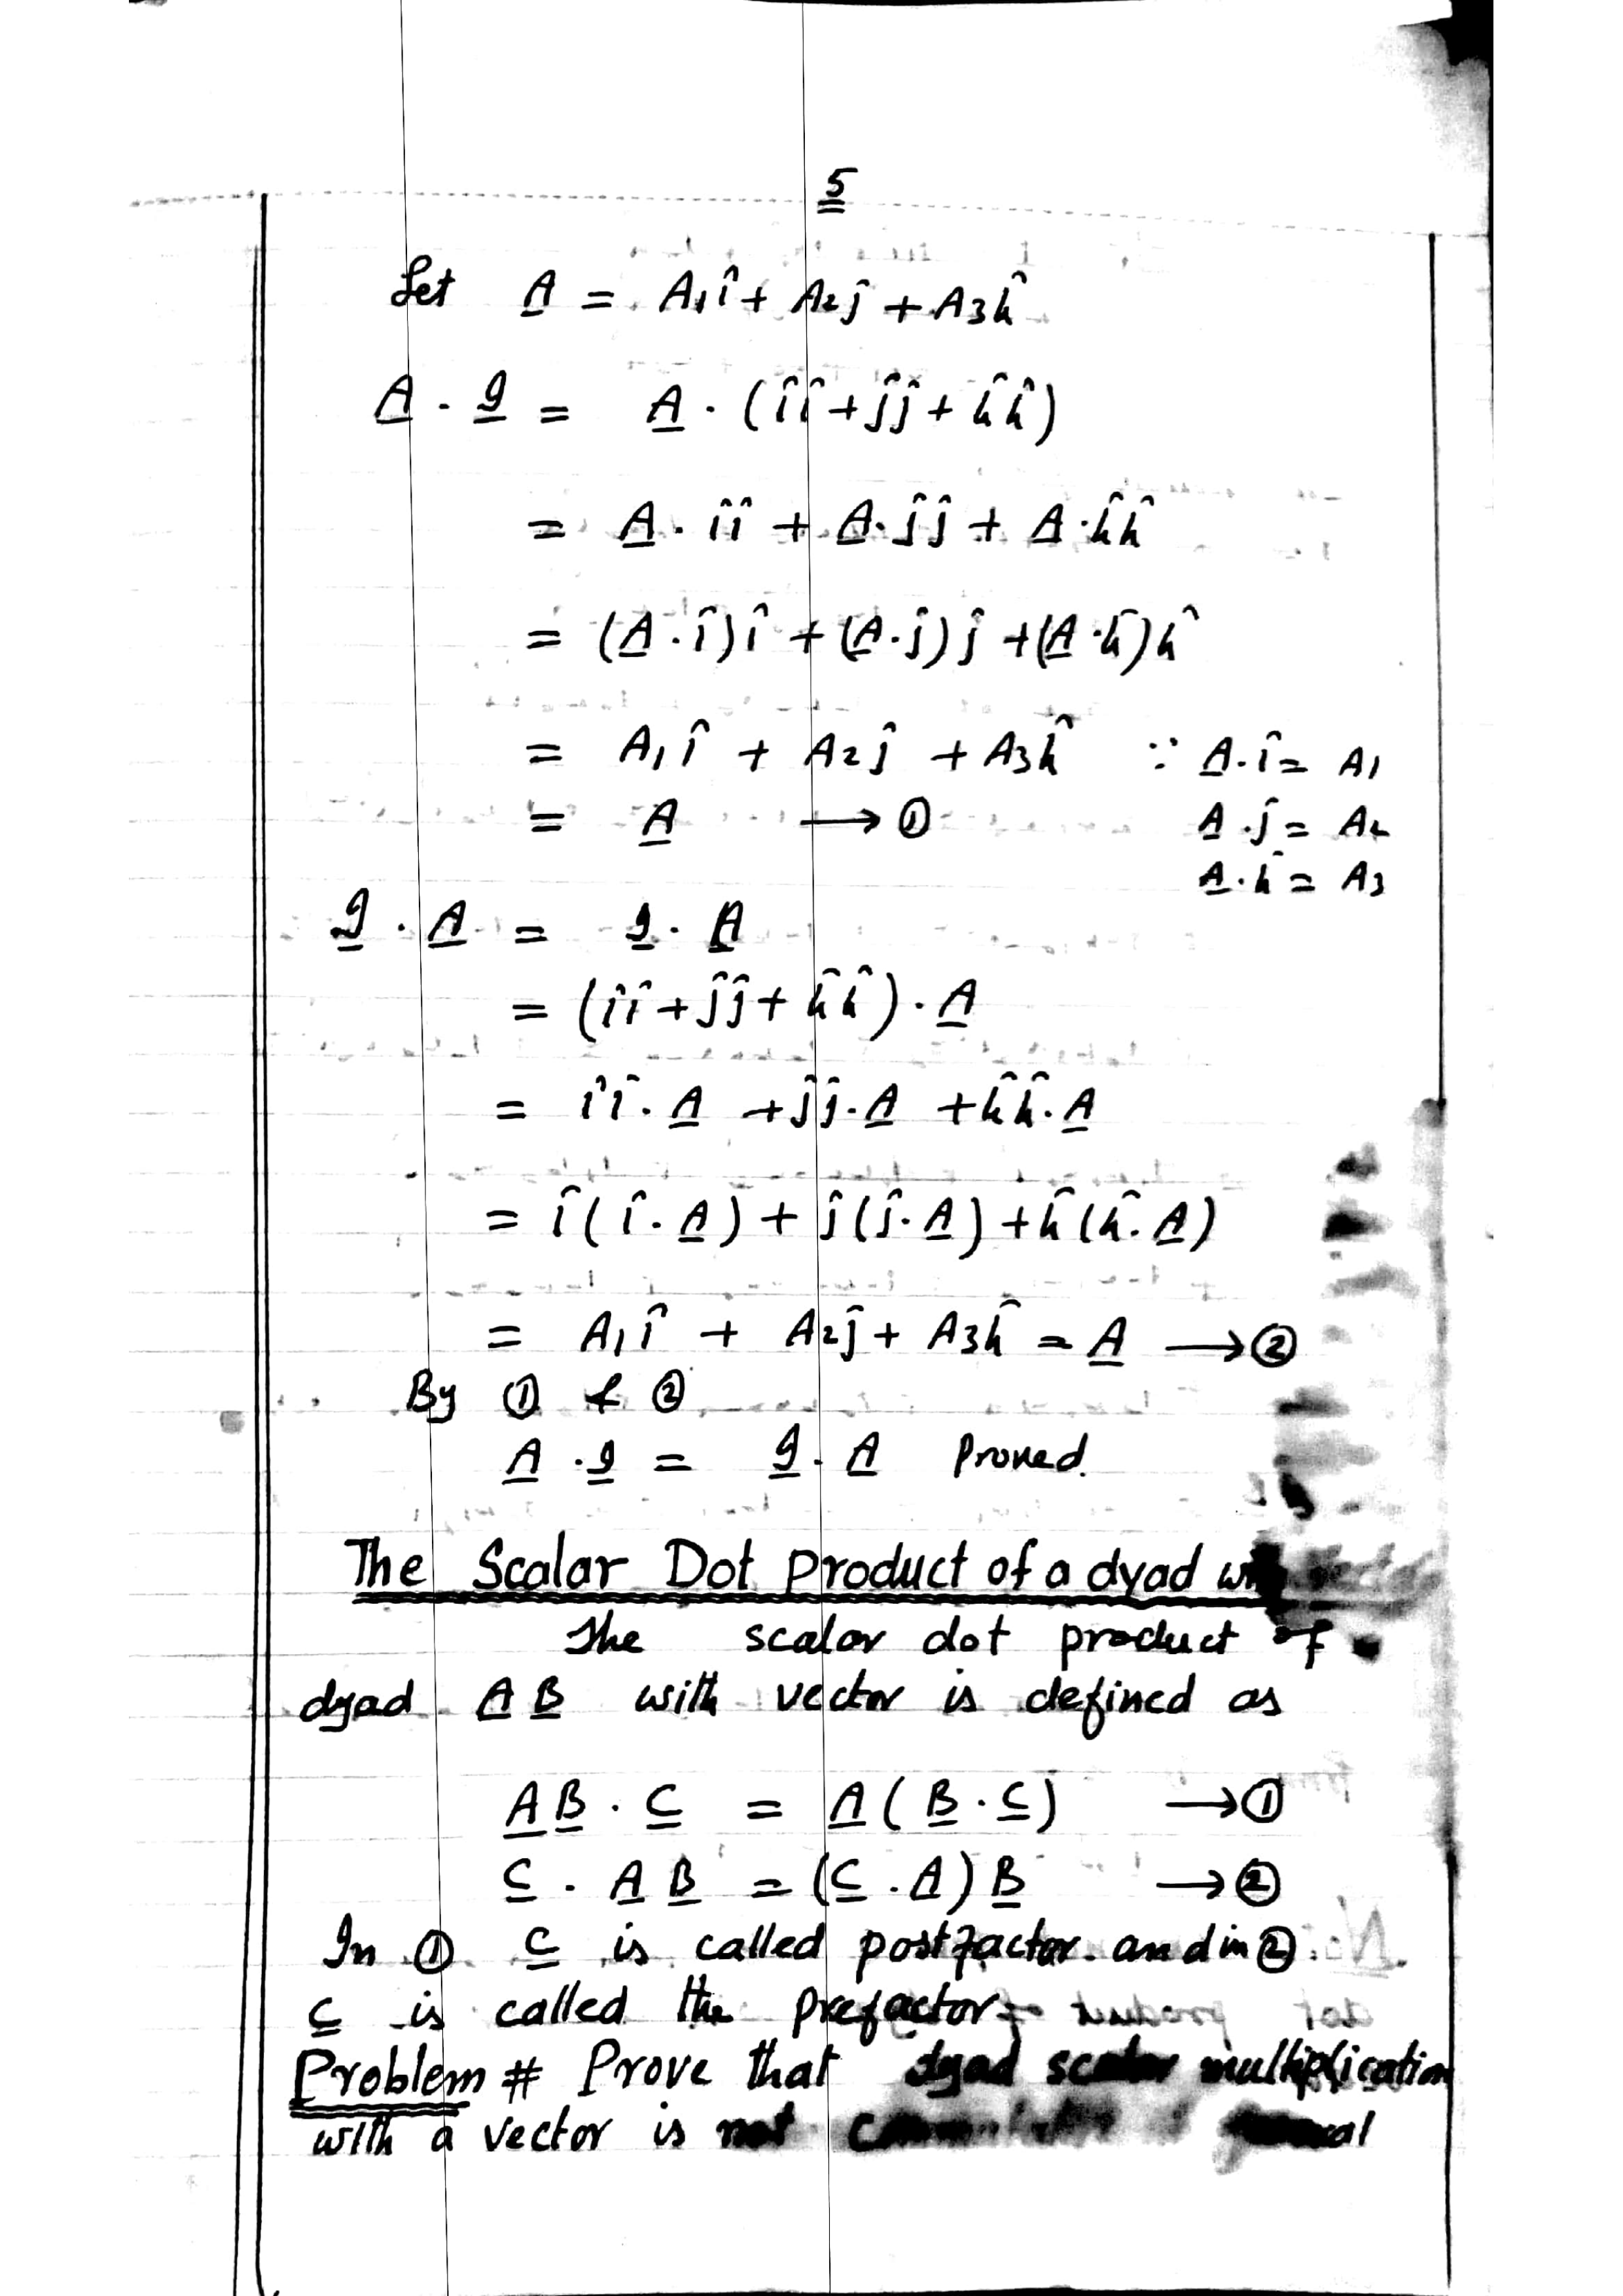 5
Let A̲ = A₁î + A₂ĵ + A₃k̂
A̲ · I̲ = A̲ · (îî + ĵĵ + k̂k̂)
= A̲ · îî + A̲ · ĵĵ + A̲ · k̂k̂
= (A̲ · î)î + (A̲ · ĵ)ĵ + (A̲ · k̂)k̂
= A₁î + A₂ĵ + A₃k̂ ∵ A̲ · î = A₁
= A̲ → ① A̲ · ĵ = A₂
A̲ · k̂ = A₃
I̲ · A̲ = I̲ · A̲
= (îî + ĵĵ + k̂k̂) · A̲
= îî · A̲ + ĵĵ · A̲ + k̂k̂ · A̲
= î(î · A̲) + ĵ(ĵ · A̲) + k̂(k̂ · A̲)
= A₁î + A₂ĵ + A₃k̂ = A̲ → ②
By ① & ②
A̲ · I̲ = I̲ · A̲ Proved.
The Scalar Dot Product of a dyad
The scalar dot product of
dyad A̲ B̲ with vector is defined as
A̲ B̲ · C̲ = A̲ ( B̲ · C̲ ) → ①
C̲ · A̲ B̲ = (C̲ · A̲) B̲ → ②
In ① C̲ is called postfactor. and in ②
C̲ is called the prefactor.
Problem # Prove that dyad scalar multiplication
with a vector is not